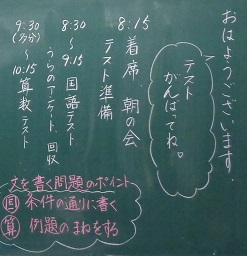 おはようございます。
テスト
がんばってね。
8:15
着席 朝の会
テスト準備
8:30
〜
9:15
国語テスト
うらのアンケート、回収
9:30
(7分)
〜
10:15
算数テスト
文を書く問題のポイント
国 条件の通りに書く
算 例題のまねをする